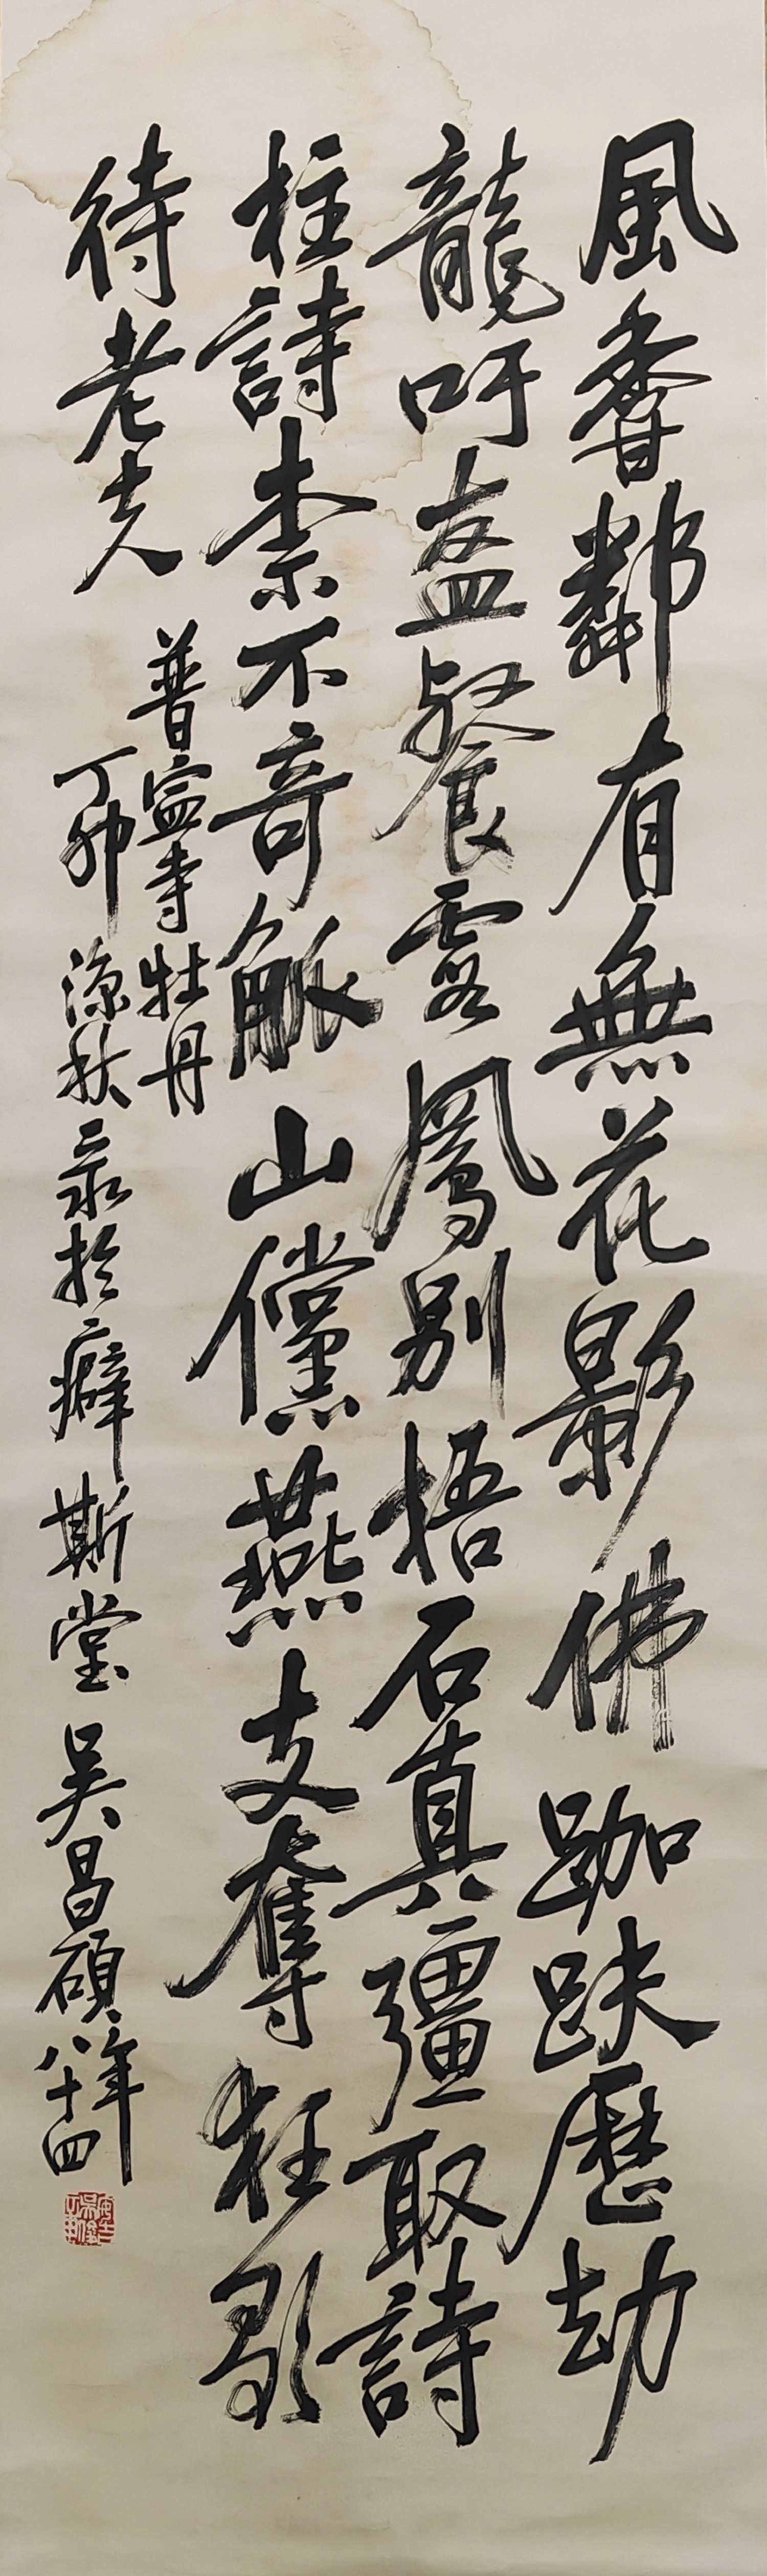 風香鄰有無花影佛跏趺歷劫
龍吁盋餐霞鳳別梧石真彊取詩
柱詩柰不奇觚山儻燕支奪狂歌
待老夫
普寧寺牡丹
丁卯涼秋彔於癖斯堂吳昌碩年八十四